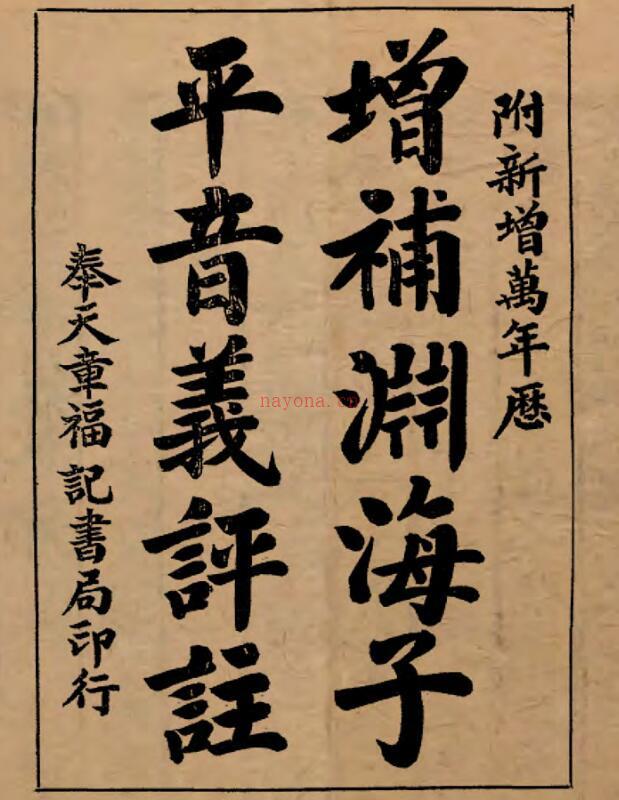 附新增萬年曆
增補淵海子
平音義評註
奉天章福記書局印行
nayona.cn